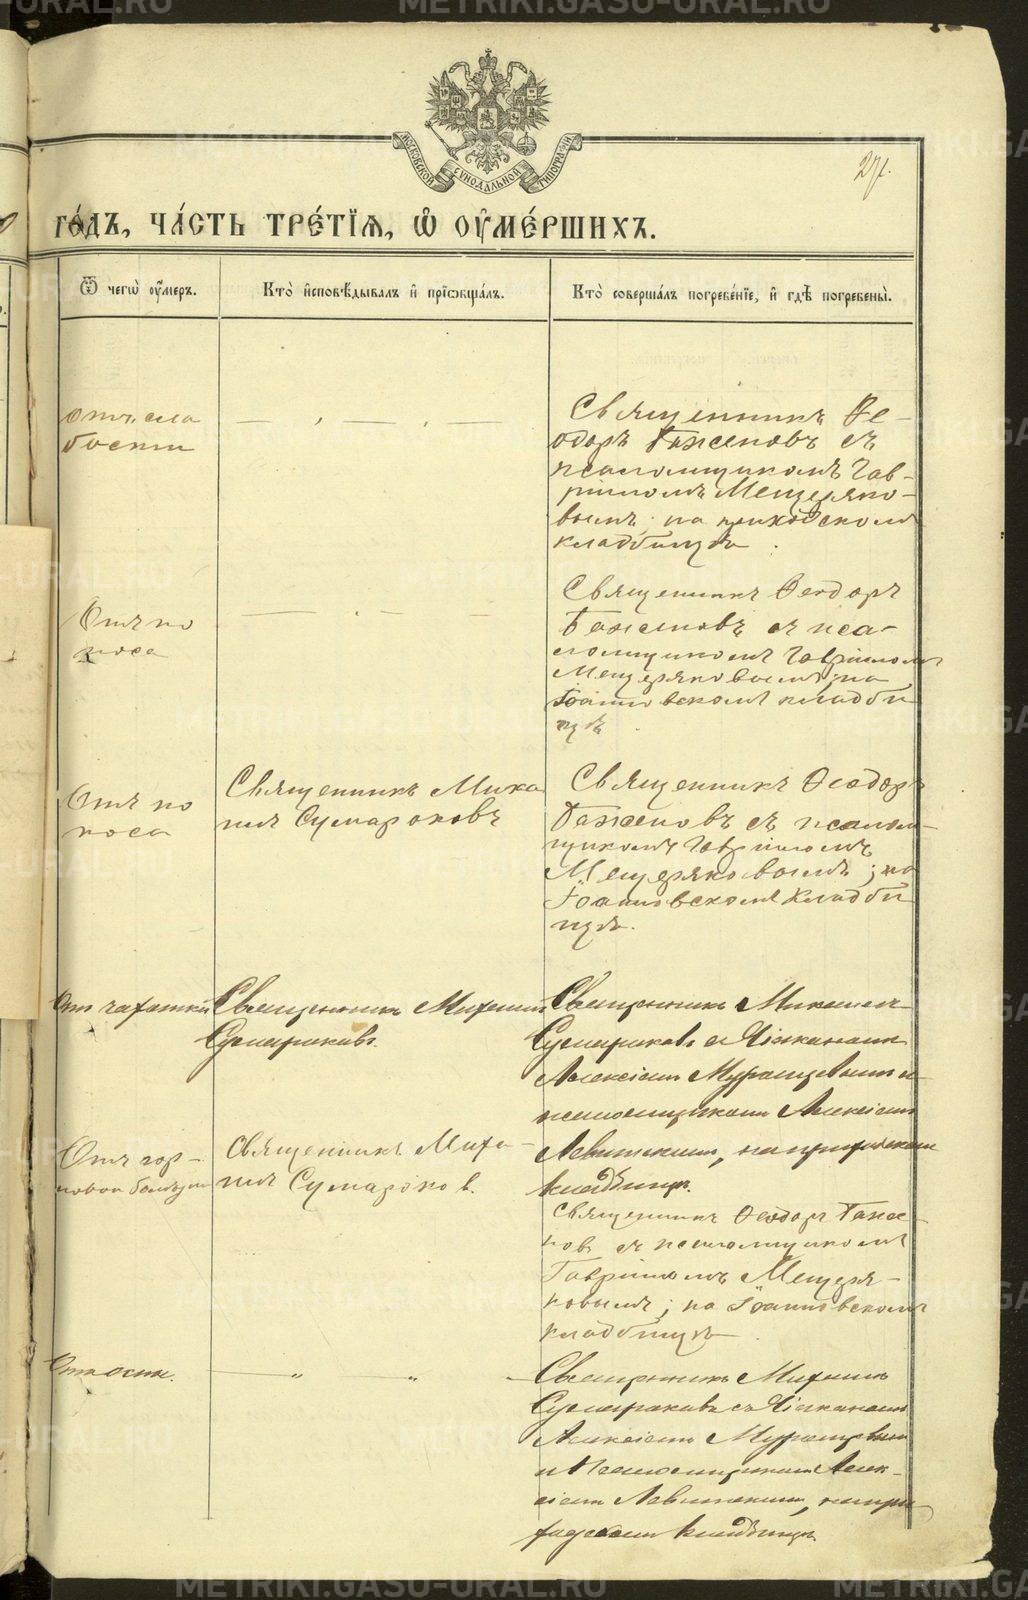 METRIKI.GASU-URAL.RU
МОСКОВСКОЙ СУНОДАЛЬНОЙ ТИПОГРАФІИ
го́дъ, ча́сть тре́тїѧ, ѽ оу҆ме́ршихъ.
Ѿ чегѡ̀ оу҆́меръ.
Кто̀ и҆сповѣ́дывалъ и҆ прїѡбща́лъ.
Кто̀ соверша́лъ погребе́нїе, и҆ гдѣ̀ погребены̀.
Отъ сла
бости
Священникъ Ѳе-
одоръ Баженовъ съ
псаломщикомъ Гав-
ріиломъ Мещеряко-
вымъ; на приходскомъ
кладбищѣ.
Отъ по
носа
Священникъ Ѳеодоръ
Баженовъ съ пса-
ломщикомъ Гавріиломъ
Мещеряковымъ; на
Іоанновскомъ кладби
щѣ.
Отъ по
носа
Священникъ Миха
илъ Сумароковъ
Священникъ Ѳеодоръ
Баженовъ съ псалом-
щикомъ Гавріиломъ
Мещеряковымъ; на
Іоанновскомъ кладби
щѣ.
От чахотки
Священникъ Михаилъ
Сумароковъ.
Священникъ Михаилъ
Сумароковъ съ Діакономъ
Алексіемъ
псаломщикомъ Алексіемъ
Левитскимъ, на приходскомъ
кладбищѣ.
Отъ гор-
ловой болѣзни
Священникъ Миха-
илъ Сумароков.
Священникъ Ѳеодоръ Баже-
нов съ псаломщикомъ
Гавріиломъ Мещеря-
ковымъ; на Іоанновскомъ
кладбищѣ.
От оспы.
Священникъ Михаилъ
Сумароковъ съ Діакономъ
Алексіемъ
и Псаломщикомъ Алек-
сіемъ Левитскимъ, на при
ходском кладбищѣ